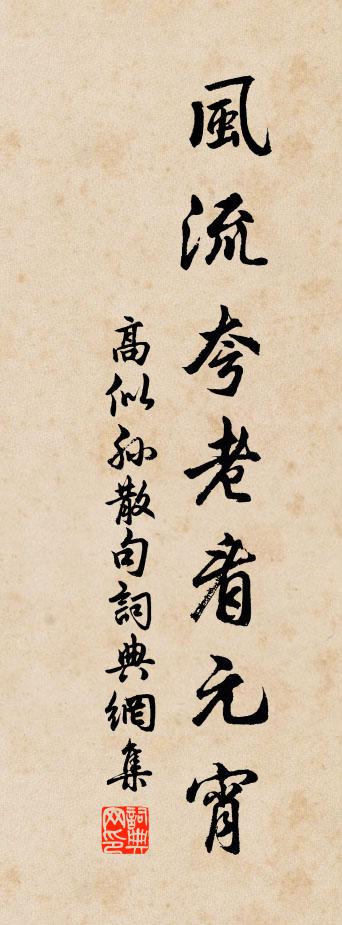 風流夸老看元宵
高似孫散句詞典網集
詞典網印